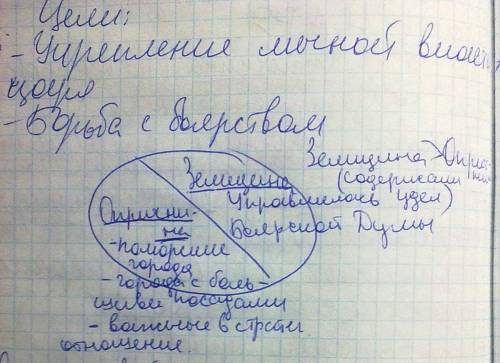 Цели:
- Укрепление личной власти
царя
- Борьба с боярством
Земщина > Оприч
(содержали
Земщина
Управлялась
Боярской Думы
Опрични-
на
- поморские
города
- города с боль-
шими посадами
- важные в страт.
отношение